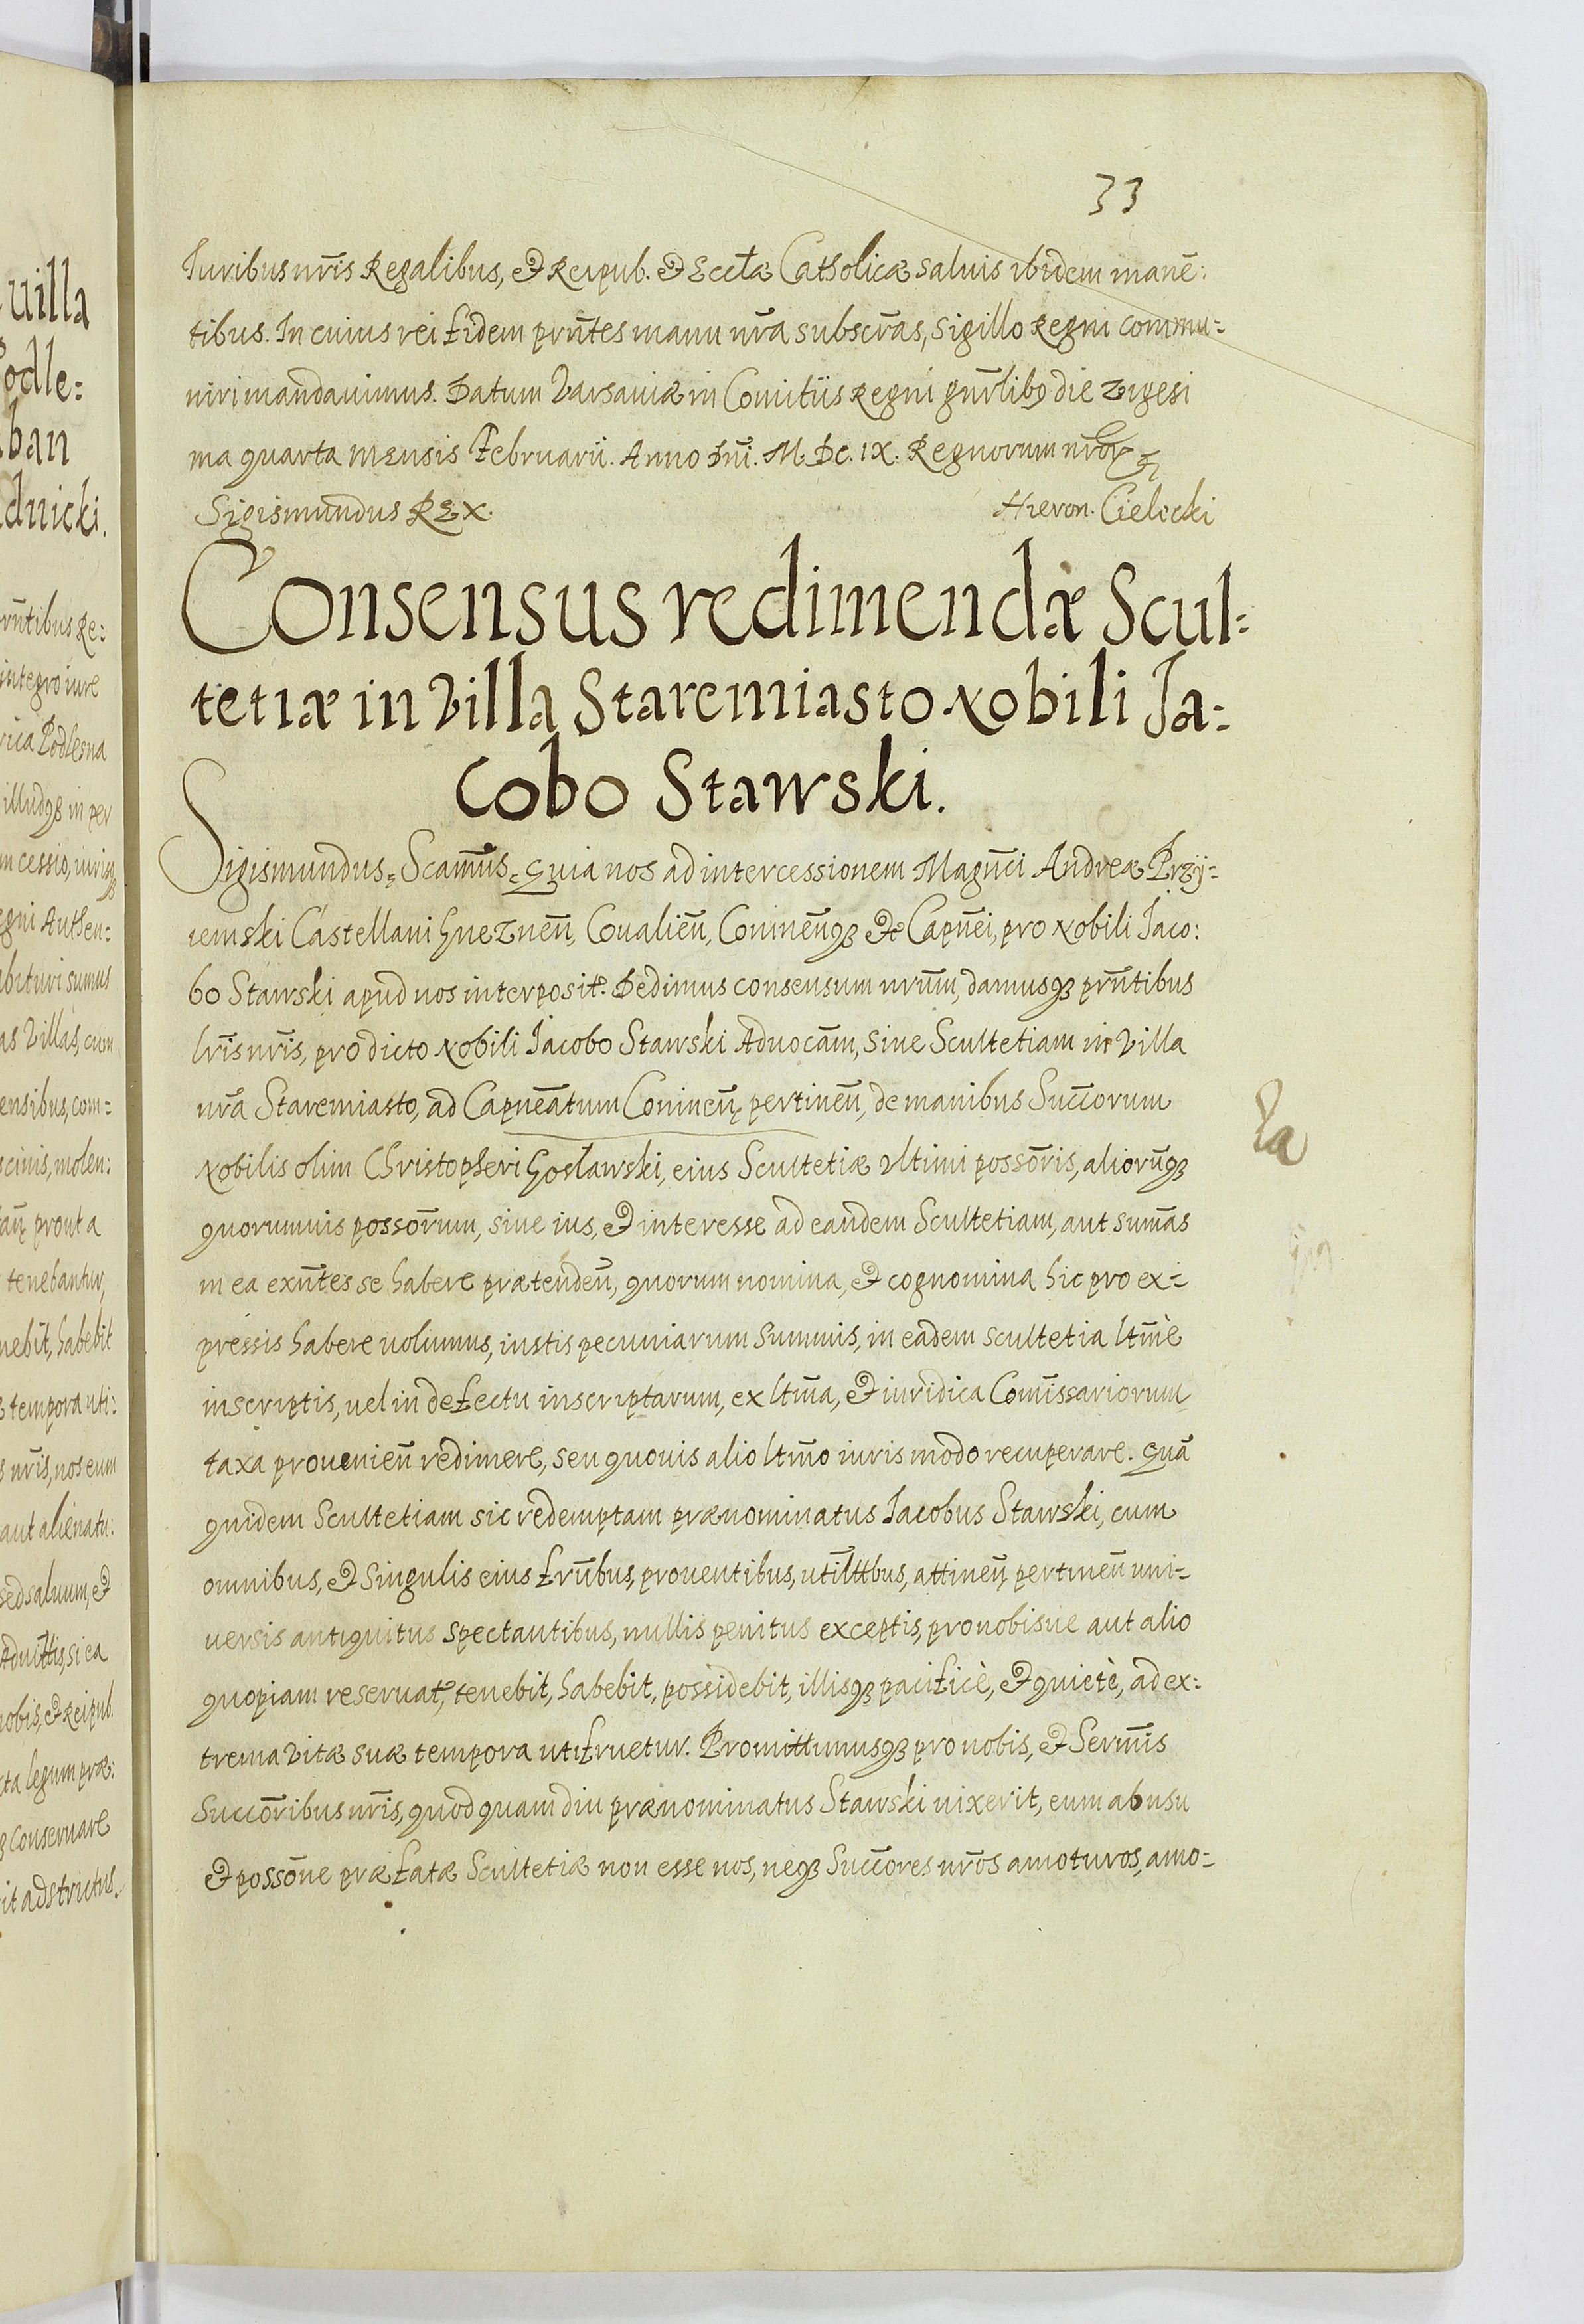 33
Iuribus nr̃is Regalibus, & Reipub. & Eccłæ Catholicæ saluis ibidem manẽ:
tibus. In cuius rei fidem prñtes manu nr̃a subscr̃as, sigillo Regni commu=
niri mandauimus. Datum Varsauiæ in Comitiis Regni gnr̃libꝰ die vigesi
ma quarta mensis Februarii. Anno Dñi. M. DC. IX. Regnorum nr̃oꝝ
Sigismundus REX. Hieron. Cielecki
Consensus redimendæ Scul=
tetiæ in Villa Staremiasto Nobili Ja=
cobo Stawski.
Sigismundus. Scam̃us. Quia nos ad intercessionem Magñci Andreæ Przy=
iemski Castellani Gneznen̄, Coualien̄, Coninen̄qꝫ & Capñei, pro Nobili Jaco:
bo Stawski apud nos interposit. Dedimus consensum nrũm, damusqꝫ prñtibus
lr̃is nr̃is, pro dicto Nobili Jacobo Stawski Aduocãm, siue Scultetiam in Villa
nr̃a Staremiasto, ad Capneãtum Coninen̄, pertinen̄, de manibus Succõrum
Nobilis olim Christopheri Goslawski, eius Scultetiæ vltimi possõris, aliorũqꝫ
quorumuis possõrum, siue ius, & interesse ad eandem Scultetiam, aut sum̃as
in ea exñtes se habere prætenden̄, quorum nomina, & cognomina hic pro ex=
pressis habere uolumus, iustis pecuniarum summis, in eadem scultetia ltm̃è
inscriptis, uel in defectu inscriptarum, ex ltm̃a, & iuridica Com̃issariorum
taxa prouenien̄ redimere, seu quouis alio ltm̃o iuris modo recuperare. Quã
quidem Scultetiam sic redemptam prænominatus Jacobus Stawski, cum
omnibus, & singulis eius frũbus, prouentibus, utiłttbus, attinen̄, pertinen̄ uni=
uersis antiquitus spectantibus, nullis penitus exceptis, pro nobisue aut alio
quopiam reseruat, tenebit, habebit, possidebit, illisqꝫ pacificè, & quietè, ad ex=
trema vitæ suæ tempora utifruetur. Promittimusqꝫ pro nobis, & Serm̃is
Succõribus nr̃is, quod quamdiu prænominatus Stawski uixerit, eum ab usu
& possõne præfatæ Scultetiæ non esse nos, neqꝫ Succõres nr̃os amoturos, amo=
uilla
odle:
ban
dnicki.
rñtibus Re:
integro iure
rica Podlesna
illudqꝫ in per
cessio, iurisqꝫ
egni Authen:
bituri sumus
as Villas, cum
ensibus, com=
scinis, molen:
prout a
tenebantur,
nebit, habebit
tempora uti:
nr̃is, nos eum
aut alienatu:
sed saluum, &
si ea
nobis, & Reipub.
cta legum præ:
conseruare
it adstrictus.